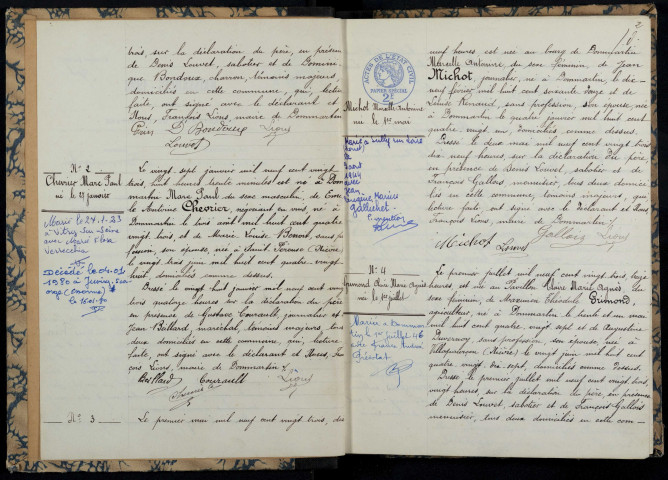 trois, sur la déclaration du père, en présence
de Denis Louvet, sabotier et de Domini-
que Bondoux, charron, témoins majeurs,
domiciliés en cette commune, qui, lecture
faite, ont signé avec le déclarant et
Nous, François Lions, maire de Dommartin
D. Bondoux Lions
Louvet
N° 2
Chevrier Marc Paul
né le 27 janvier
Marié le 24.1.53
à Vitry sur Seine
avec
Décédé le
1980 à
(Essonne) le
Le vingt sept janvier mil neuf cent vingt
trois, huit heures trente minutes est né à Dom-
martin Marc Paul du sexe masculin, de
Antoine Chevrier, né à
Dommartin le huit cent quatre
vingt trois et de Marie Louise Benoit, sans pro-
fession, son épouse, née à Saint Péreuse (Nièvre)
le vingt trois juin mil huit cent quatre-vingt-
huit, domiciliés comme dessus.
Dressé le vingt huit janvier mil neuf cent vingt
trois quatorze heures sur la déclaration du père
en présence de Gustave Courault, journalier et
Jean Bollard, maréchal, témoins majeurs, tous
deux domiciliés en cette commune, qui, lecture
faite, ont signé avec le déclarant et Nous, Fran-
çois Lions, maire de Dommartin
Bollard Courault Lions
N° 3
Le premier mai mil neuf cent vingt trois, dix
2
ACTES DE L'ÉTAT CIVIL
PAPIER SPÉCIAL
Michot Marcelle Antoinette
née le 1er mai
Mariée à Sully sur Loire
Loiret
le
1944
avec
Jean
neuf heures est née au bourg de Dommartin
Marcelle Antoinette du sexe féminin, de Jean
Michot, journalier, né à Dommartin, le dix-
neuf février mil huit cent soixante douze et de
Louise Renaud, sans profession, son épouse, née
à Dommartin le quatre janvier mil huit cent
quatre vingt un, domiciliés comme dessus.
Dressé le deux mai mil neuf cent vingt trois
dix neuf heures, sur la déclaration du père,
en présence de Denis Louvet, sabotier et de
François Gallois, menuisier, tous deux domici-
liés en cette commune, témoins majeurs, qui,
lecture faite, ont signé avec le déclarant et Nous
François Lions, maire de Dommartin
Gallois Lions
Michot Louvet
N° 4
Marie Agnès
née le 1er juillet
Mariée à Dommar-
tin le juillet 46
avec
Le premier juillet mil neuf cent vingt trois, treize
heures, est née au Pavillon Marie Agnès du
sexe féminin, de Maximien Théodule Grimond,
apiculteur, né à Dommartin le trente et un mai
mil huit cent quatre vingt sept et de Augustine
Duvernoy, sans profession, son épouse, née à
Villapourçon (Nièvre) le vingt juin mil huit cent
quatre vingt dix-sept, domiciliés comme dessus.
Dressé le premier juillet mil neuf cent vingt trois,
vingt heures, sur la déclaration du père en présence
de Denis Louvet, sabotier et de François Gallois
menuisier, tous deux domiciliés en cette com-